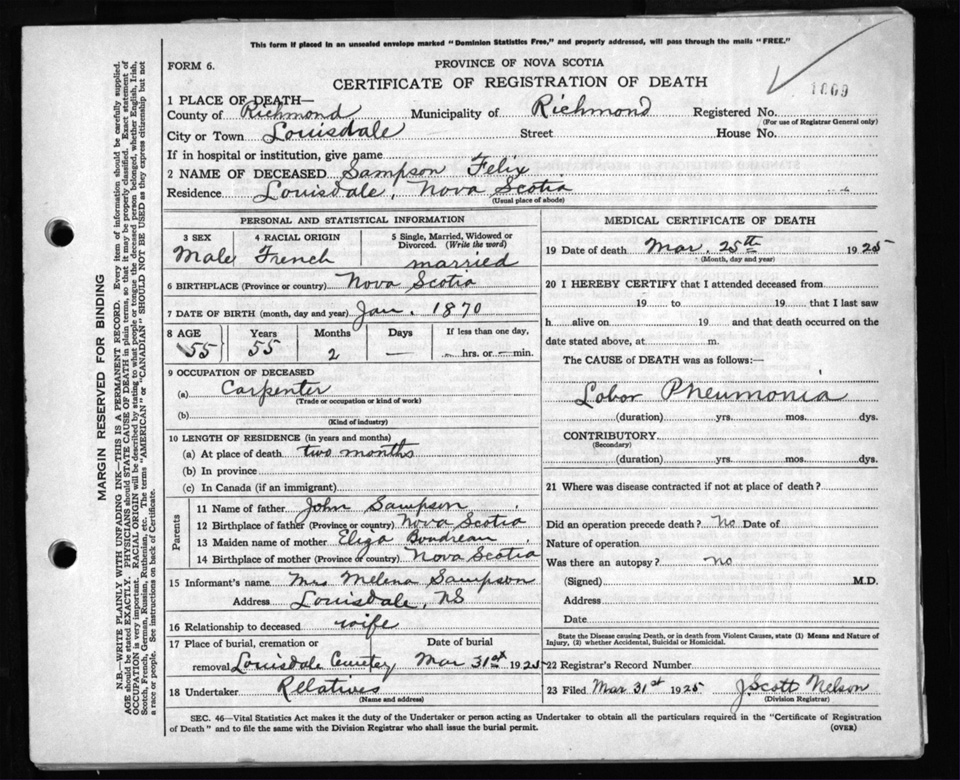 This form if placed in an unsealed envelope marked "Dominion Statistics Free," and properly addressed, will pass through the mails "FREE."
FORM 6.
PROVINCE OF NOVA SCOTIA
CERTIFICATE OF REGISTRATION OF DEATH
1809
1 PLACE OF DEATH—
County of Richmond Municipality of Richmond Registered No.
(For use of Registrar General only)
City or Town Louisdale Street House No.
If in hospital or institution, give name
2 NAME OF DECEASED Sampson Felix
Residence Louisdale, Nova Scotia
(Usual place of abode)
PERSONAL AND STATISTICAL INFORMATION
3 SEX 4 RACIAL ORIGIN 5 Single, Married, Widowed or Divorced. (Write the word)
Male French married
6 BIRTHPLACE (Province or country) Nova Scotia
7 DATE OF BIRTH (month, day and year) Jan. 1870
8 AGE Years Months Days If less than one day,
55 55 2 — hrs. or min.
9 OCCUPATION OF DECEASED
(a) Carpenter
(Trade or occupation or kind of work)
(b)
(Kind of industry)
10 LENGTH OF RESIDENCE (in years and months)
(a) At place of death two months
(b) In province
(c) In Canada (if an immigrant)
Parents
11 Name of father John Sampson
12 Birthplace of father (Province or country) Nova Scotia
13 Maiden name of mother Eliza Boudreau
14 Birthplace of mother (Province or country) Nova Scotia
15 Informant's name Mrs Melena Sampson
Address Louisdale, NS
16 Relationship to deceased wife
17 Place of burial, cremation or Date of burial
removal Louisdale Cemetery Mar 31st 1925
18 Undertaker Rellatives
(Name and address)
MEDICAL CERTIFICATE OF DEATH
19 Date of death Mar. 25th 1925
(Month, day and year)
20 I HEREBY CERTIFY that I attended deceased from
19 to 19 that I last saw
h alive on 19 and that death occurred on the
date stated above, at m.
The CAUSE of DEATH was as follows:—
Lobor Pneumonia
(duration) yrs. mos. dys.
CONTRIBUTORY
(Secondary)
(duration) yrs. mos. dys.
21 Where was disease contracted if not at place of death?
Did an operation precede death? No Date of
Nature of operation
Was there an autopsy? no
(Signed) M.D.
Address
Date
State the Disease causing Death, or in death from Violent Causes, state (1) Means and Nature of
Injury, (2) whether Accidental, Suicidal or Homicidal.
22 Registrar's Record Number
23 Filed Mar 31st 1925 J. Scott Nelson
(Division Registrar)
SEC. 46—Vital Statistics Act makes it the duty of the Undertaker or person acting as Undertaker to obtain all the particulars required in the "Certificate of Registration
of Death" and to file the same with the Division Registrar who shall issue the burial permit.
(OVER)
MARGIN RESERVED FOR BINDING
N.B.—WRITE PLAINLY WITH UNFADING INK—THIS IS A PERMANENT RECORD. Every item of information should be carefully supplied.
AGE should be stated EXACTLY. PHYSICIANS should STATE CAUSE OF DEATH in plain terms, so that it may be properly classified. Exact statement of
OCCUPATION is very important. RACIAL ORIGIN will be described by stating to what people or tongue the deceased person belonged, whether English, Irish,
Scotch, French, German, Russian, Ruthenian, etc. The terms "AMERICAN" or "CANADIAN" SHOULD NOT BE USED as they express citizenship but not
a race or people. See instructions on back of Certificate.